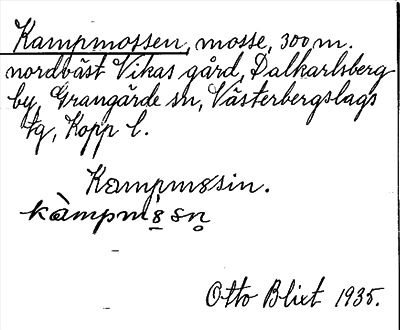 Kampmossen, mosse, 300 m.
nordväst Vikas gård, Dalkarlsberg
by, Grangärde sn, Västerbergslags
tg, Kopp l.
Kampmosin.
kàmpmò̱sn̥
Otto Blixt 1935.